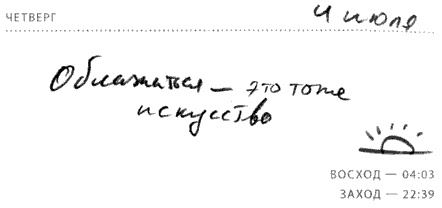 ЧЕТВЕРГ 4 июля
Облажаться — это тоже
искусство
ВОСХОД — 04:03
ЗАХОД — 22:39